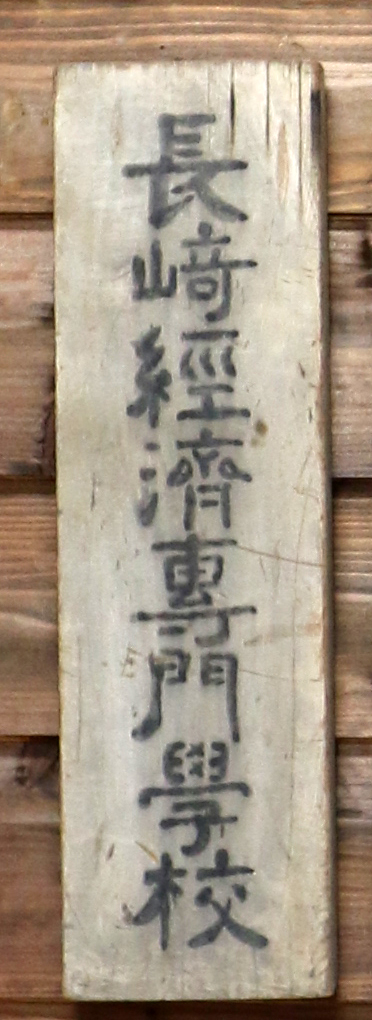 長﨑經濟專門學校